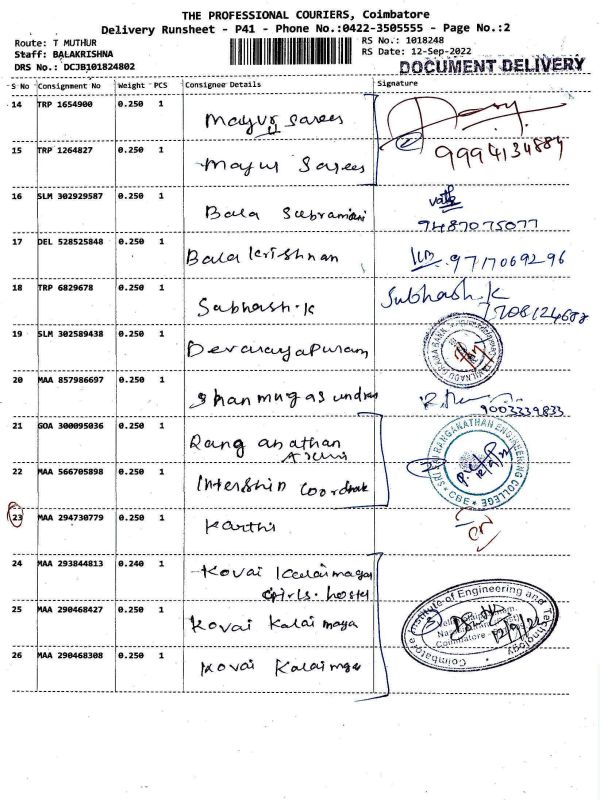 THE PROFESSIONAL COURIERS, Coimbatore
Delivery Runsheet - P41 - Phone No.:0422-3505555 - Page No.:2
Route: T MUTHUR RS No.: 1018248
Staff: BALAKRISHNA RS Date: 12-Sep-2022
DRS No.: DCJB101824802 DOCUMENT DELIVERY
S No Consignment No Weight PCS Consignee Details Signature
14 TRP 1654900 0.250 1 Mayur Sarees
15 TRP 1264827 0.250 1 Mayur Sarees 2 9994134884
16 SLM 302929587 0.250 1 Bala Subramani 9487075077
17 DEL 528525848 0.250 1 Balakrishnan 9717069296
18 TRP 6829678 0.250 1 Subhash.K Subhash.K
19 SLM 302589438 0.250 1 Devarayapuram TAMILNADU GRAMA BANK
20 MAA 857986697 0.250 1 Shanmugasundram 9003339833
21 GOA 300095036 0.250 1 Ranganathan
22 MAA 566705898 0.250 1 Intership 2 SRI RANGANATHAN ENGINEERING COLLEGE CBE 12/9/22
23 MAA 294730779 0.250 1 Karthi
24 MAA 293844813 0.240 1 Kovai Kalaimagal
Girls. hostel
25 MAA 290468427 0.250 1 Kovai Kalaimaga 3 Coimbatore Institute of Engineering and Technology 12/9/22
26 MAA 290468308 0.250 1 Kovai Kalaimga